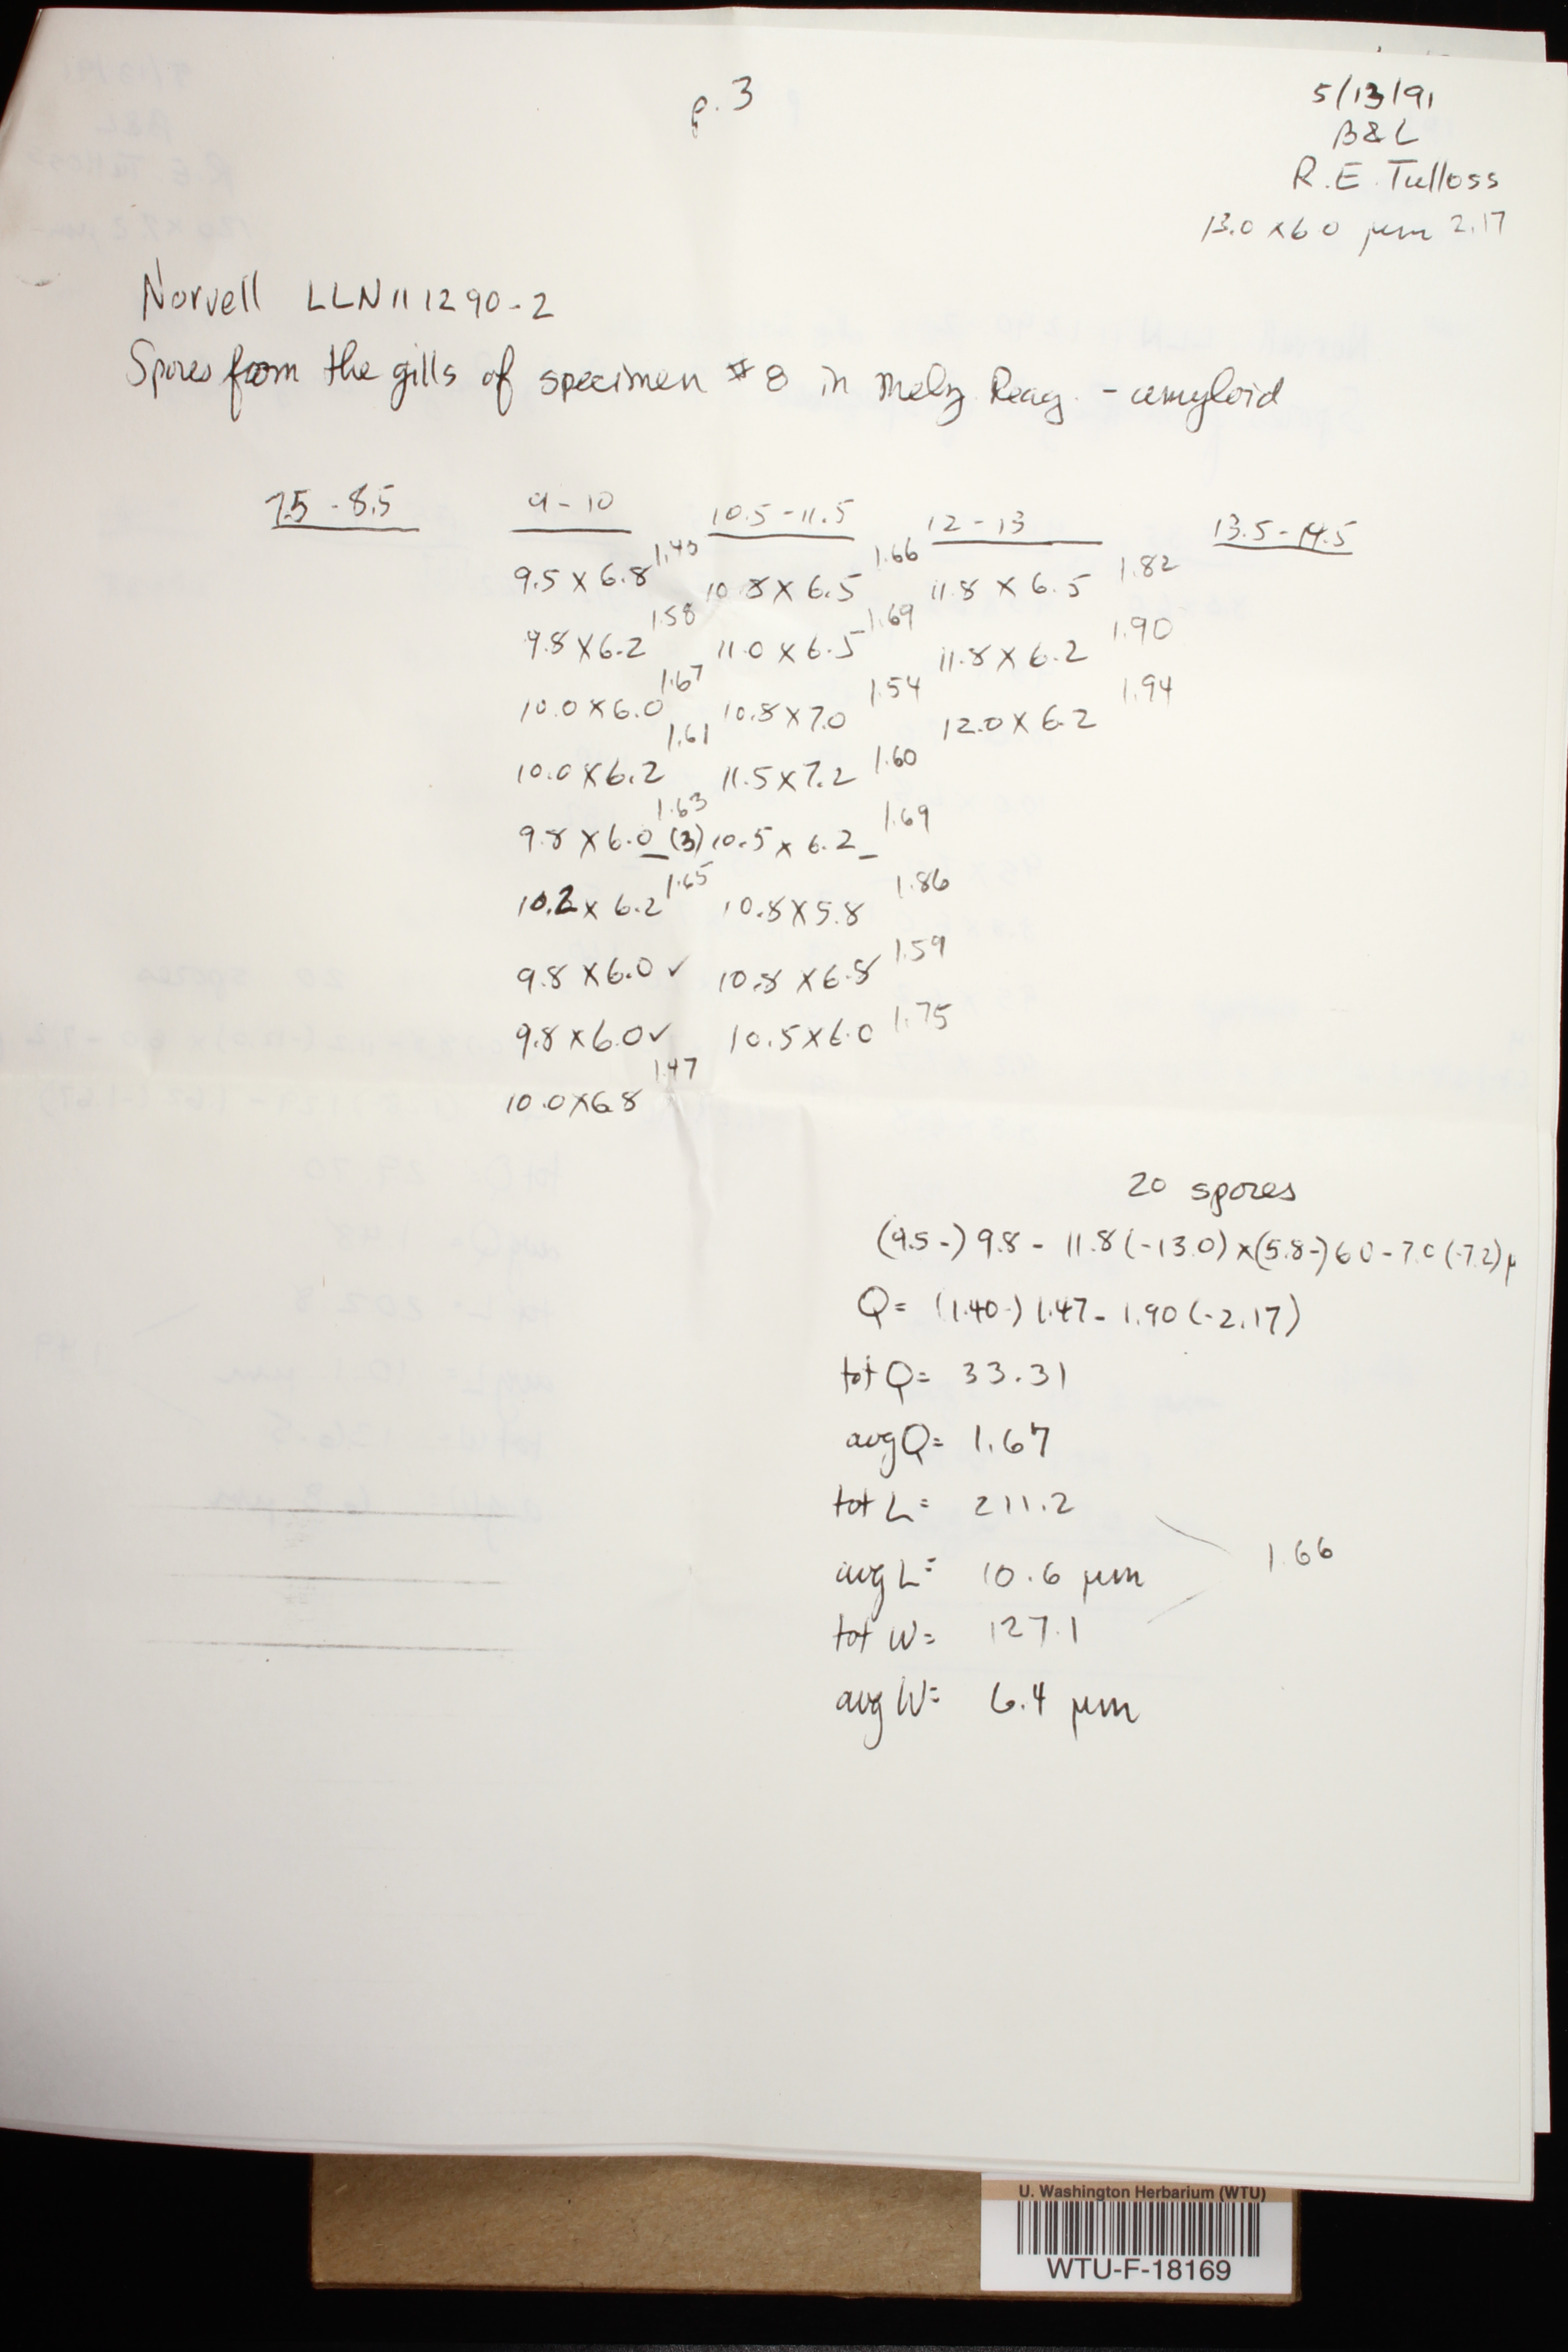 p. 3
5/13/91
B&L
R.E. Tulloss
13.0 x 6.0 μm 2.17
Norvell LLN111290-2
Spores from the gills of specimen #8 in Melz. Reag. - amyloid
7.5 - 8.5 9 - 10 10.5 - 11.5 12 - 13 13.5 - 14.5
9.5 x 6.8 1.40 10.8 x 6.5 1.66 11.8 x 6.5 1.82
9.8 x 6.2 1.58 11.0 x 6.5 1.69 11.8 x 6.2 1.90
10.0 x 6.0 1.67 10.8 x 7.0 1.54 12.0 x 6.2 1.94
10.0 x 6.2 1.61 11.5 x 7.2 1.60
9.8 x 6.0 (3) 1.63 10.5 x 6.2 1.69
10.2 x 6.2 1.65 10.8 x 5.8 1.86
9.8 x 6.0 ✓ 10.8 x 6.8 1.59
9.8 x 6.0 ✓ 10.5 x 6.0 1.75
10.0 x 6.8 1.47
20 spores
(9.5-) 9.8 - 11.8 (-13.0) x (5.8-) 6.0 - 7.0 (-7.2) μ
Q = (1.40-) 1.47 - 1.90 (-2.17)
tot Q = 33.31
avg Q = 1.67
tot L = 211.2
avg L = 10.6 μm
1.66
tot W = 127.1
avg W = 6.4 μm
U. Washington Herbarium (WTU)
WTU-F-18169